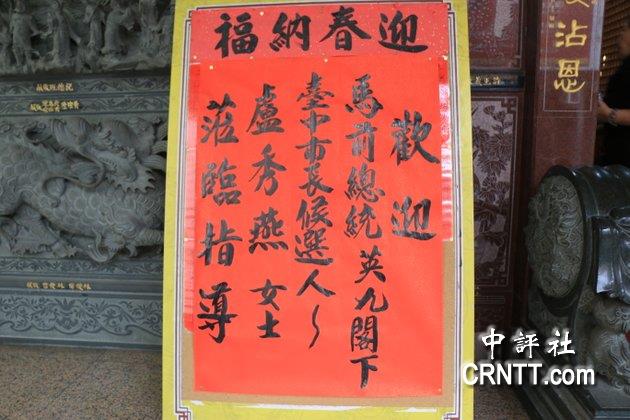 迎春納福
歡迎
馬前總統 英九閣下
臺中市長候選人~
盧秀燕 女士
蒞臨指導
沾恩
中評社
CRNTT.com